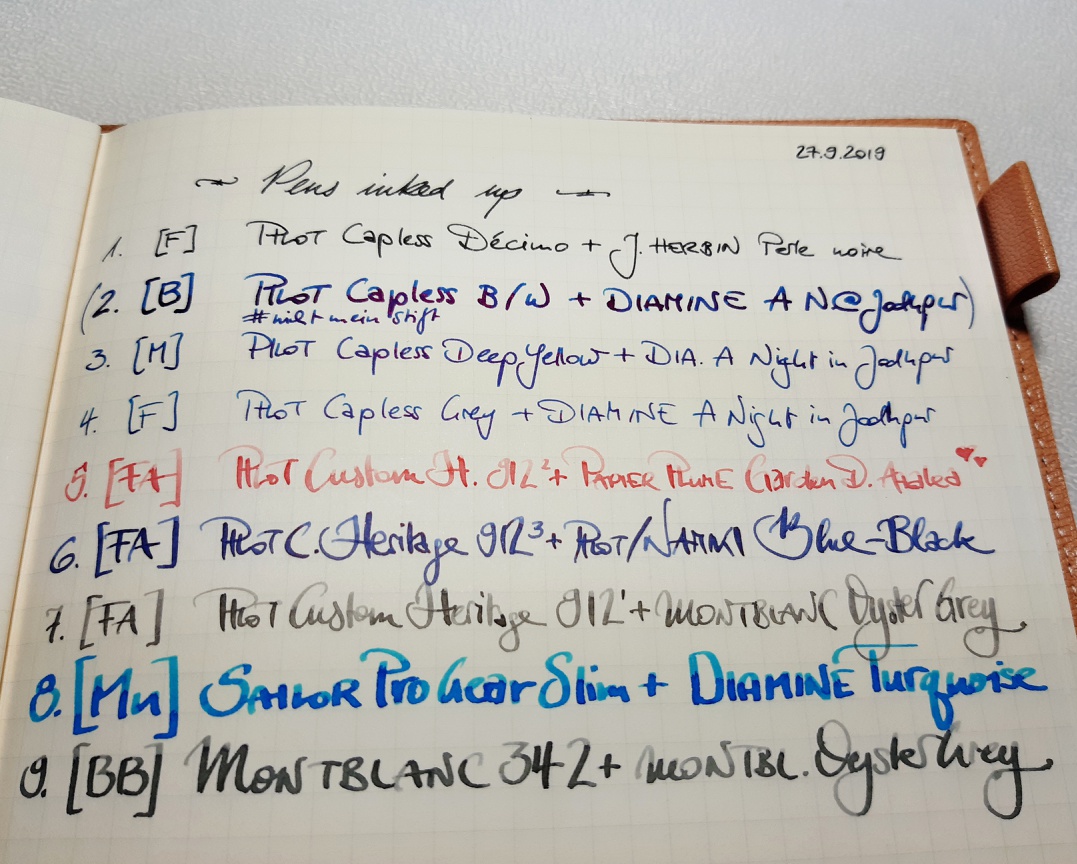 27.9.2019
~ Pens inked up ~
1. [F] PILOT Capless Décimo + J. HERBIN Perle noire
(2. [B] PILOT Capless B/W + DIAMINE A N@Jodhpur)
#nicht mein stift
3. [M] PILOT Capless Deep Yellow + DIA. A Night in Jodhpur
4. [F] PILOT Capless Grey + DIAMINE A Night in Jodhpur
5. [FA] PILOT Custom H. 912² + PAPIER PLUME Garden D.
6. [FA] PILOT C. Heritage 912³ + PILOT/NAMIKI Blue-Black
7. [FA] PILOT Custom Heritage 912¹ + MONTBLANC Oyster Grey
8. [Mu] SAILOR Pro Gear Slim + DIAMINE Turquoise
9. [BB] MONTBLANC 342 + MONTBL. Oyster Grey